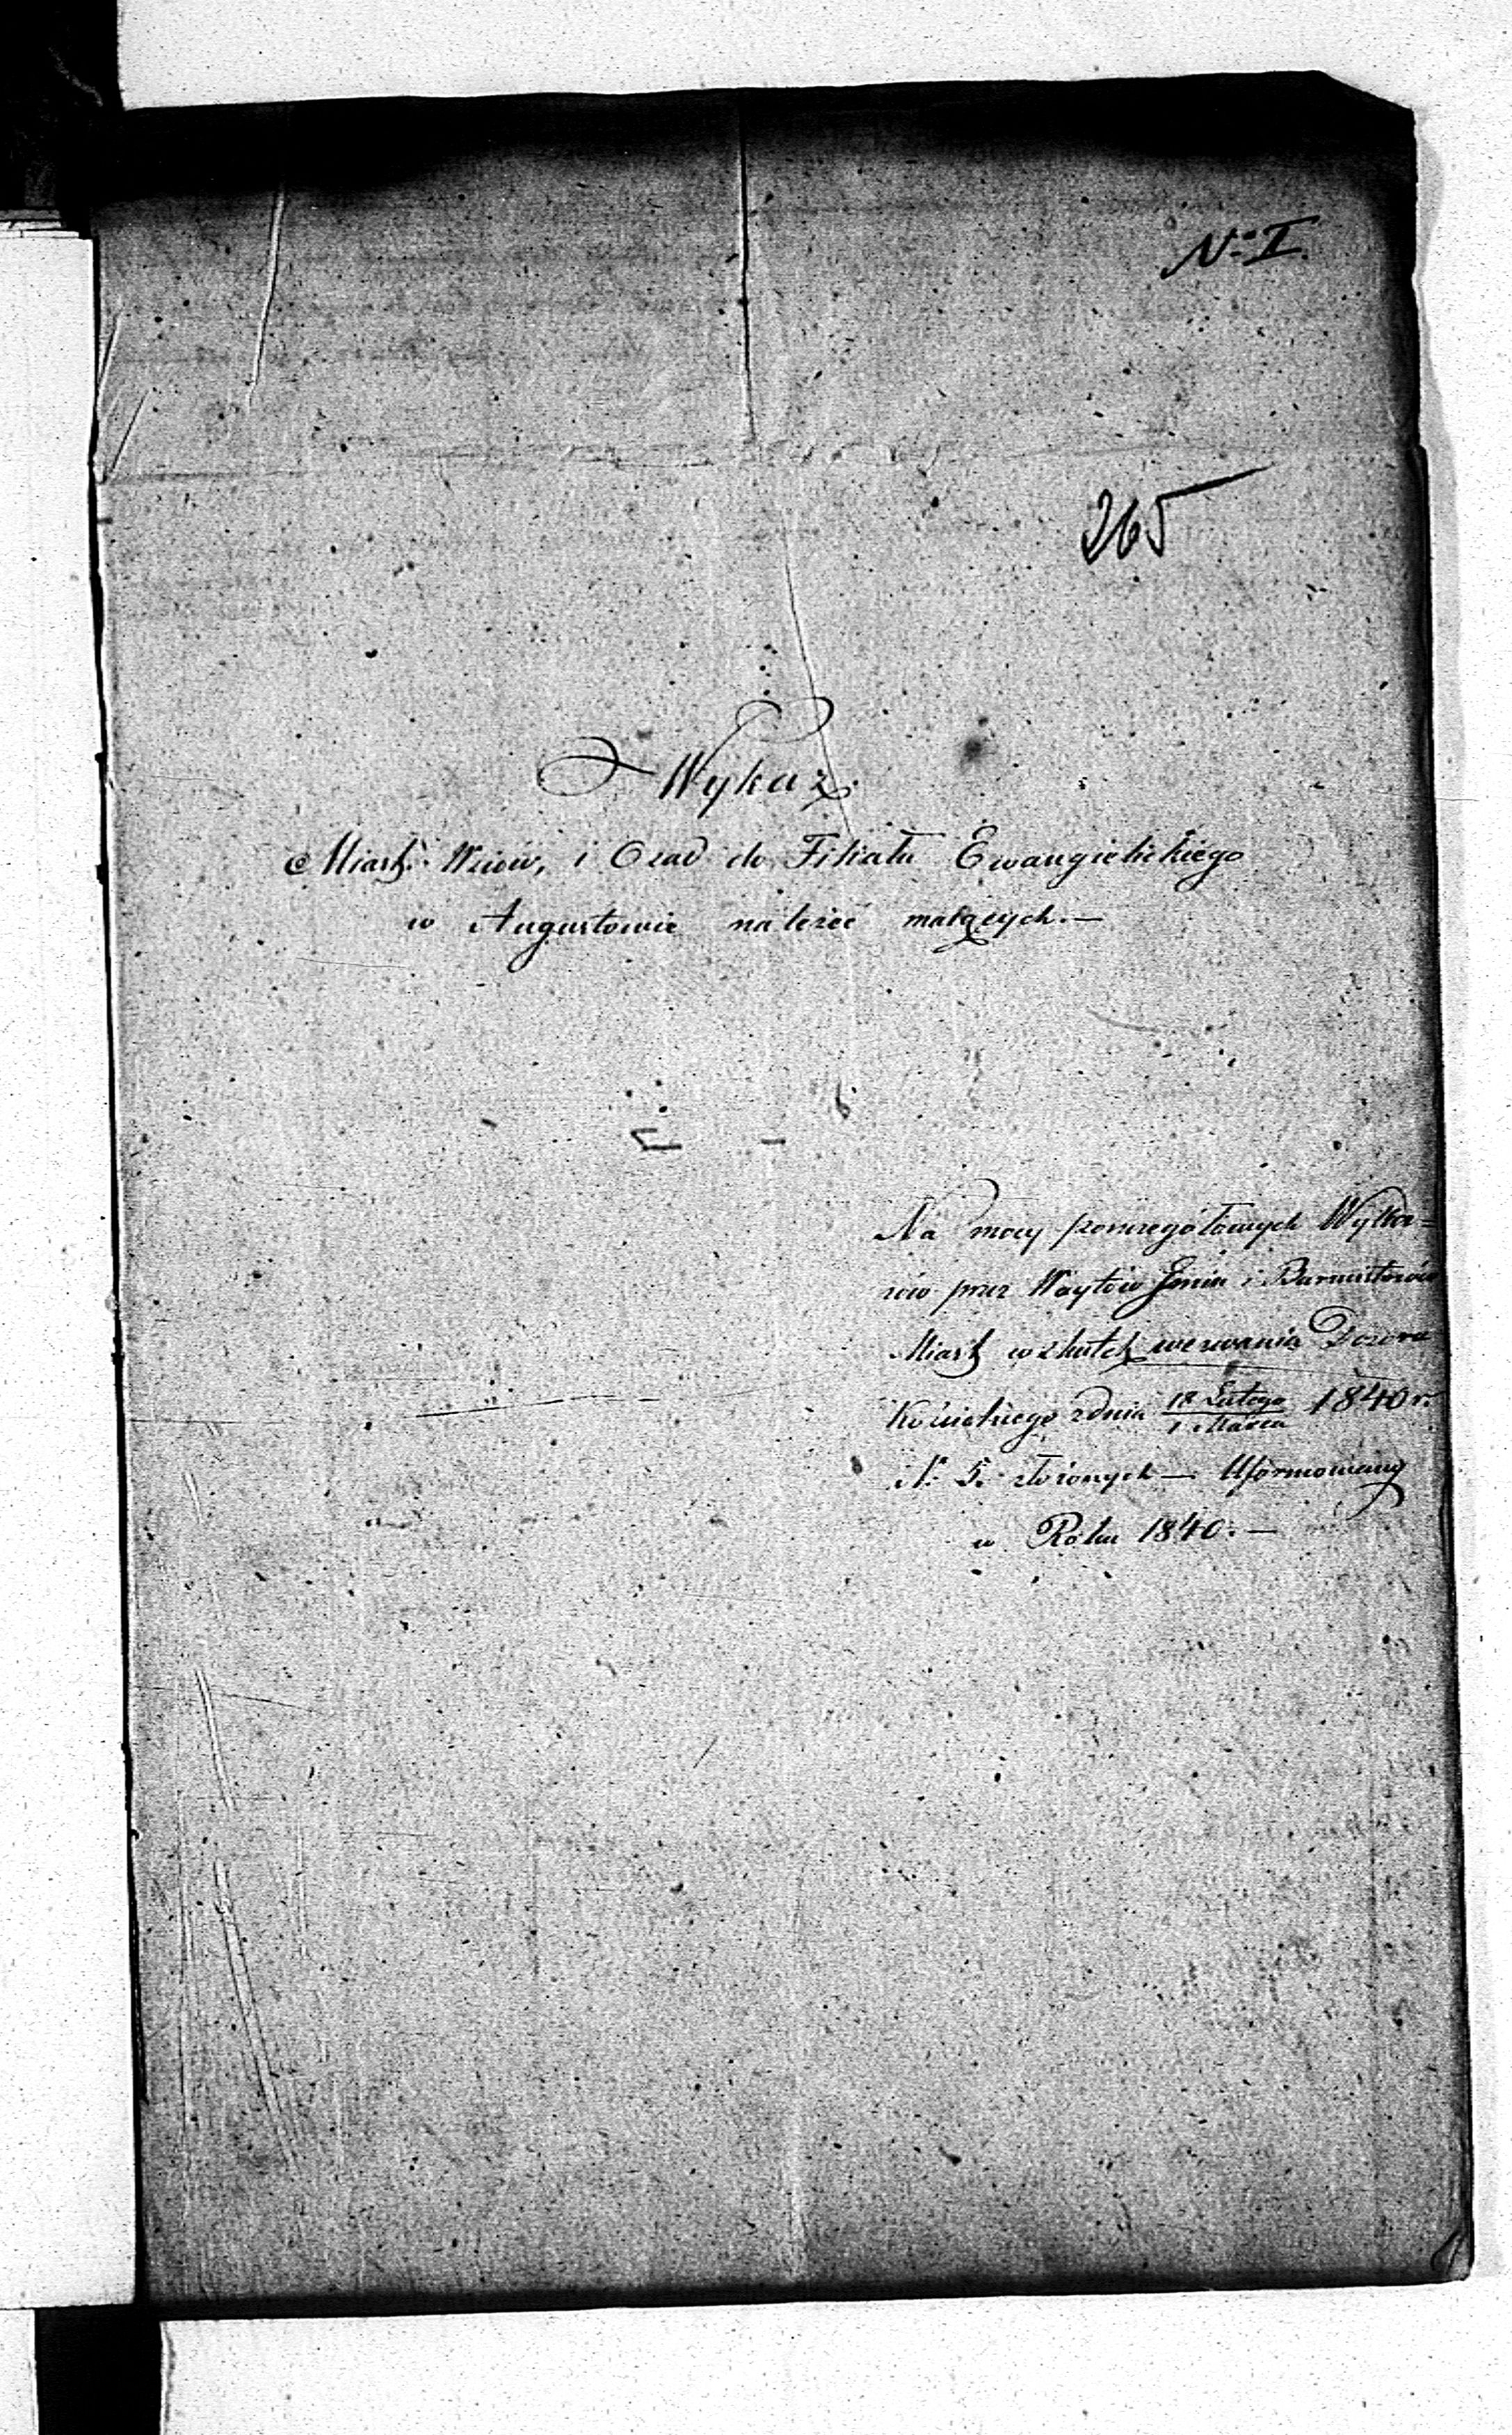 No. I.
265
Wykaz
Miast Wsiów, i Osad do Filiału Ewangielickiego
w Augustowie należeć mających.—
Na mocy szczegółowych Wyka=
zów przez Woytów Gmin i Burmistrzów
Miast w skutek wezwania Dozoru
Kościelnego z dnia 18 Lutego / 1 Marca 1840 r.
N. 5. złożonych — Uformowany
w Roku 1840. —